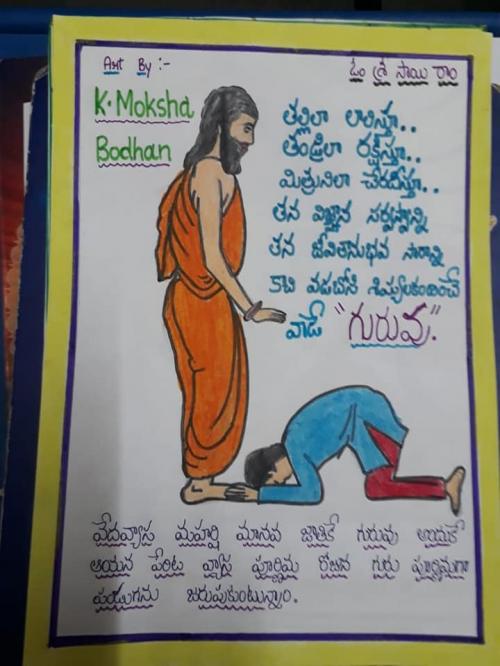 Art By :-
ఓం శ్రీ సాయి రాం
K. Moksha
Bodhan
తల్లిలా లాలిస్తూ..
తండ్రిలా రక్షిస్తూ..
మిత్రునిలా చేరదీస్తూ..
తన విజ్ఞాన సర్వస్వాన్ని
తన జీవితానుభవ సారాన్ని
కాచి వడబోసి శిష్యులకందించే
వాడే "గురువు."
వేదవ్యాస మహర్షి మానవ జాతికే గురువు అందుకే
ఆయన పేరిట వ్యాస పూర్ణిమ రోజున గురు పూర్ణిమగా
పండుగను జరుపుకుంటున్నాం.